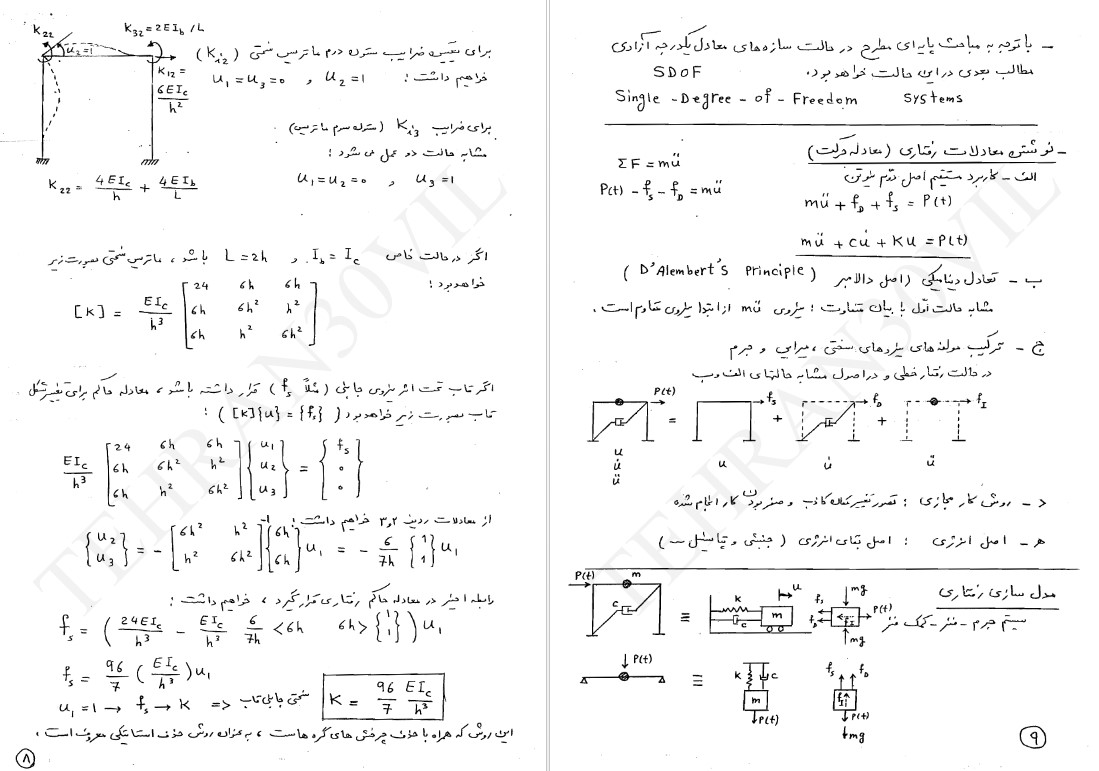 K₂₂
u₂=1
K₃₂ = 2EI_b / L
K₁₂ = 6EI_c / h²
K₂₂ = 4EI_c / h + 4EI_b / L
برای تعیین ضرایب ستون دوم ماتریس سختی (K_i2)
خواهیم داشت: u₂ = 1 و u₁ = u₃ = 0
برای ضرایب K_i3 (ستون سوم ماتریس)
مشابه حالت دو عمل می شود:
u₃ = 1 و u₁ = u₂ = 0
اگر در حالت خاص I_b = I_c و L = 2h باشد، ماتریس سختی بصورت زیر
خواهد بود:
[K] = EI_c / h³ [24 6h 6h
6h 6h² h²
6h h² 6h²]
اگر قاب تحت اثر نیروی جانبی (مثلاً f_s) قرار داشته باشد، معادله حاکم برای تغییر شکل
قاب بصورت زیر خواهد بود ([K]{u} = {f_s}):
EI_c / h³ [24 6h 6h
6h 6h² h²
6h h² 6h²] {u₁ u₂ u₃} = {f_s 0 0}
از معادلات ردیف ۲و۳ خواهیم داشت:
{u₂ u₃} = − [6h² h²
h² 6h²]⁻¹ {6h 6h} u₁ = − 6/7h {1 1} u₁
رابطه اخیر در معادله حاکم رفتاری قرار گیرد، خواهیم داشت:
f_s = (24EI_c / h³ − EI_c / h³ 6/7h <6h 6h> {1 1}) u₁
f_s = 96/7 (EI_c / h³) u₁
u₁ = 1 → f_s → K => سختی جانبی قاب K = 96/7 EI_c / h³
این روش که همراه با حذف چرخش های گره هاست، به عنوان روش حذف استاتیکی معروف است.
۸
TEHRAN30VIL
- با توجه به مباحث پایه ای مطرح در حالت سازه های معادل یکدرجه آزادی
مطالب بعدی در این حالت خواهد بود. SDOF
Single - Degree - of - Freedom Systems
- نوشتن معادلات رفتاری (معادله حرکت)
ΣF = mü
الف - کاربرد مستقیم اصل دوم نیوتن
P(t) - f_s - f_D = mü
mü + f_D + f_s = P(t)
mü + cu̇ + Ku = P(t)
ب - تعادل دینامیکی (اصل دالامبر D'Alembert's Principle)
مشابه حالت اول با بیان متفاوت: نیروی mü از ابتدا نیروی مقاوم است.
ج - ترکیب مولفه های نیروهای سختی، میرایی و جرم
در حالت رفتار خطی و در اصول مشابه حالتهای الف و ب
P(t) = f_s + f_D + f_I
u u̇ ü
u
u̇
ü
د - روش کار مجازی: تصور تغییر مکان کاذب و صفر بودن کار انجام شده
هـ - اصل انرژی: اصل بقای انرژی (جنبشی و پتانسیل ...)
مدل سازی رفتاری
سیستم جرم - فنر - کمک فنر
P(t) m c ≡ K c m u
f_s f_D mg f_I P(t) mg
P(t) ≡ K c m P(t)
f_s f_D f_I P(t) mg
۹
TEHRAN30VIL